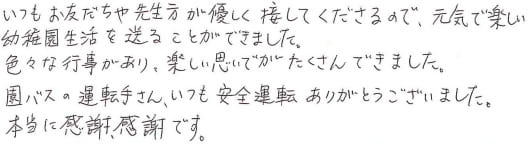 いつもお友だちや先生方が優しく接してくださるので、元気で楽しい
幼稚園生活を送ることができました。
色々な行事があり、楽しい思いでがたくさんできました。
園バスの運転手さん、いつも安全運転ありがとうございました。
本当に感謝、感謝です。